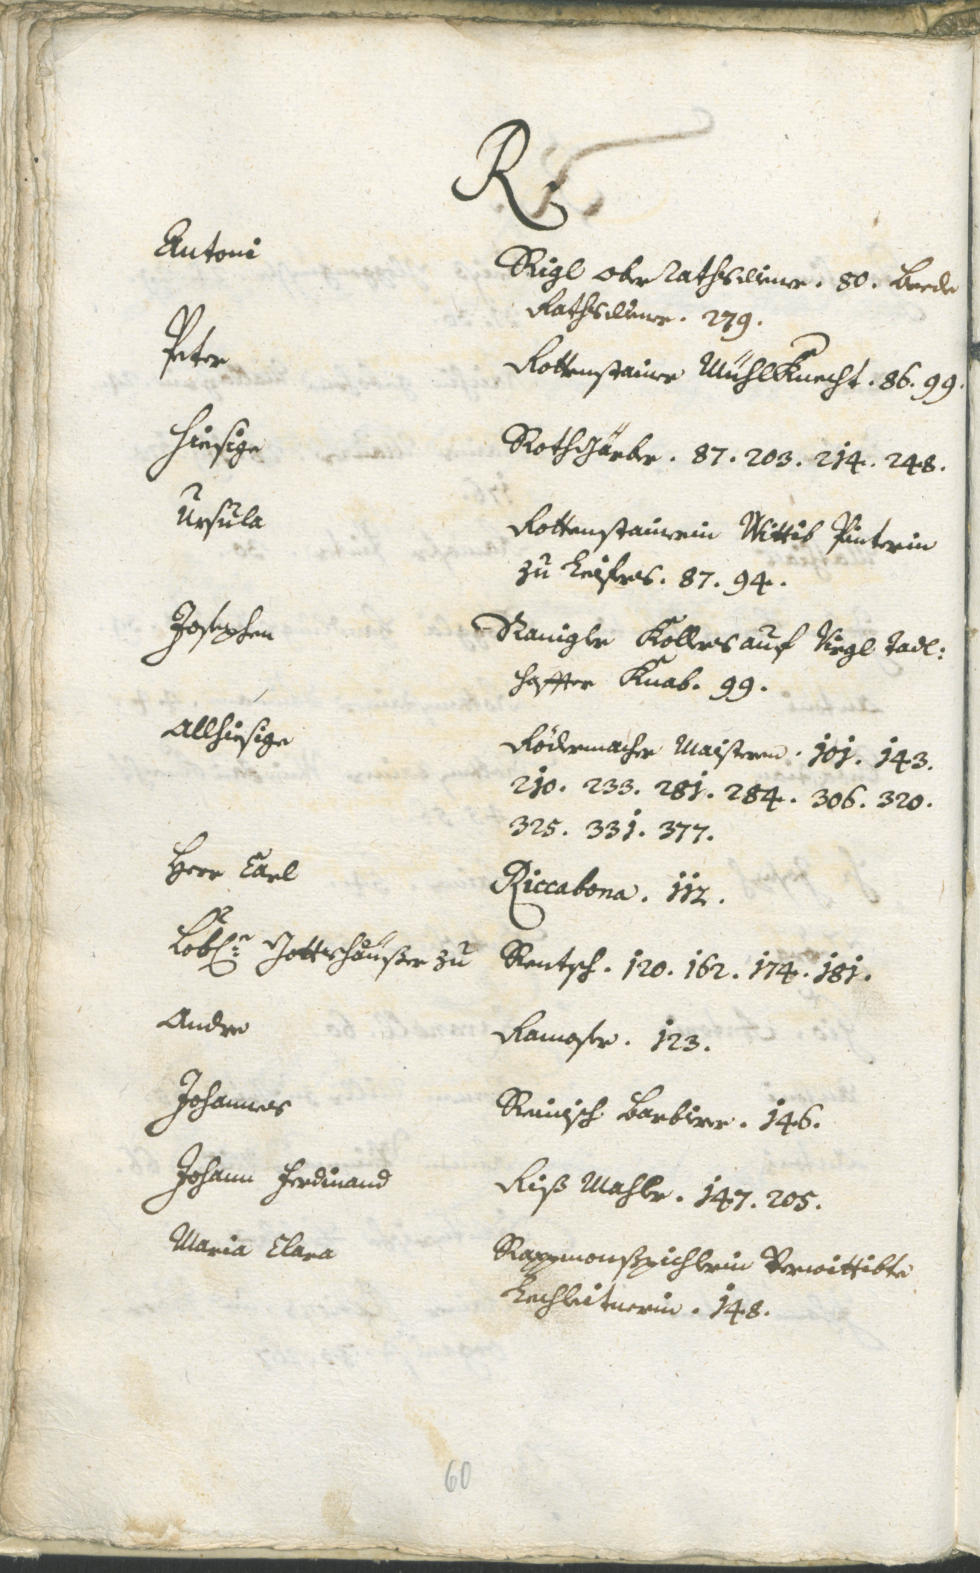 R.
Antoni Rigl ober Rathsdiener. 80. beede
Rathsdiener. 279.
Peter Rottenstainer MühlKnecht. 86. 99.
Hiesige Rothgärber. 87. 203. 214. 248.
Ursula Rottenstainerin Wittib Pinterin
zu Leifers. 87. 94.
Josephen Ranigler Kollers auf Virgl Tadl:
haffter Knab. 99.
Allhiesige Rödermacher Maistern. 101. 143.
210. 233. 281. 284. 306. 320.
325. 331. 377.
Herr Carl Riccabona. 112.
Löbl: Gottshäußer zu Rentsch. 120. 162. 174. 181.
Andre Ramoser. 123.
Johannes Reinisch Barbirer. 146.
Johann Ferdinand Riß Mahler. 147. 205.
Maria Clara Verwittibte
Lechleitnerin. 148.
60